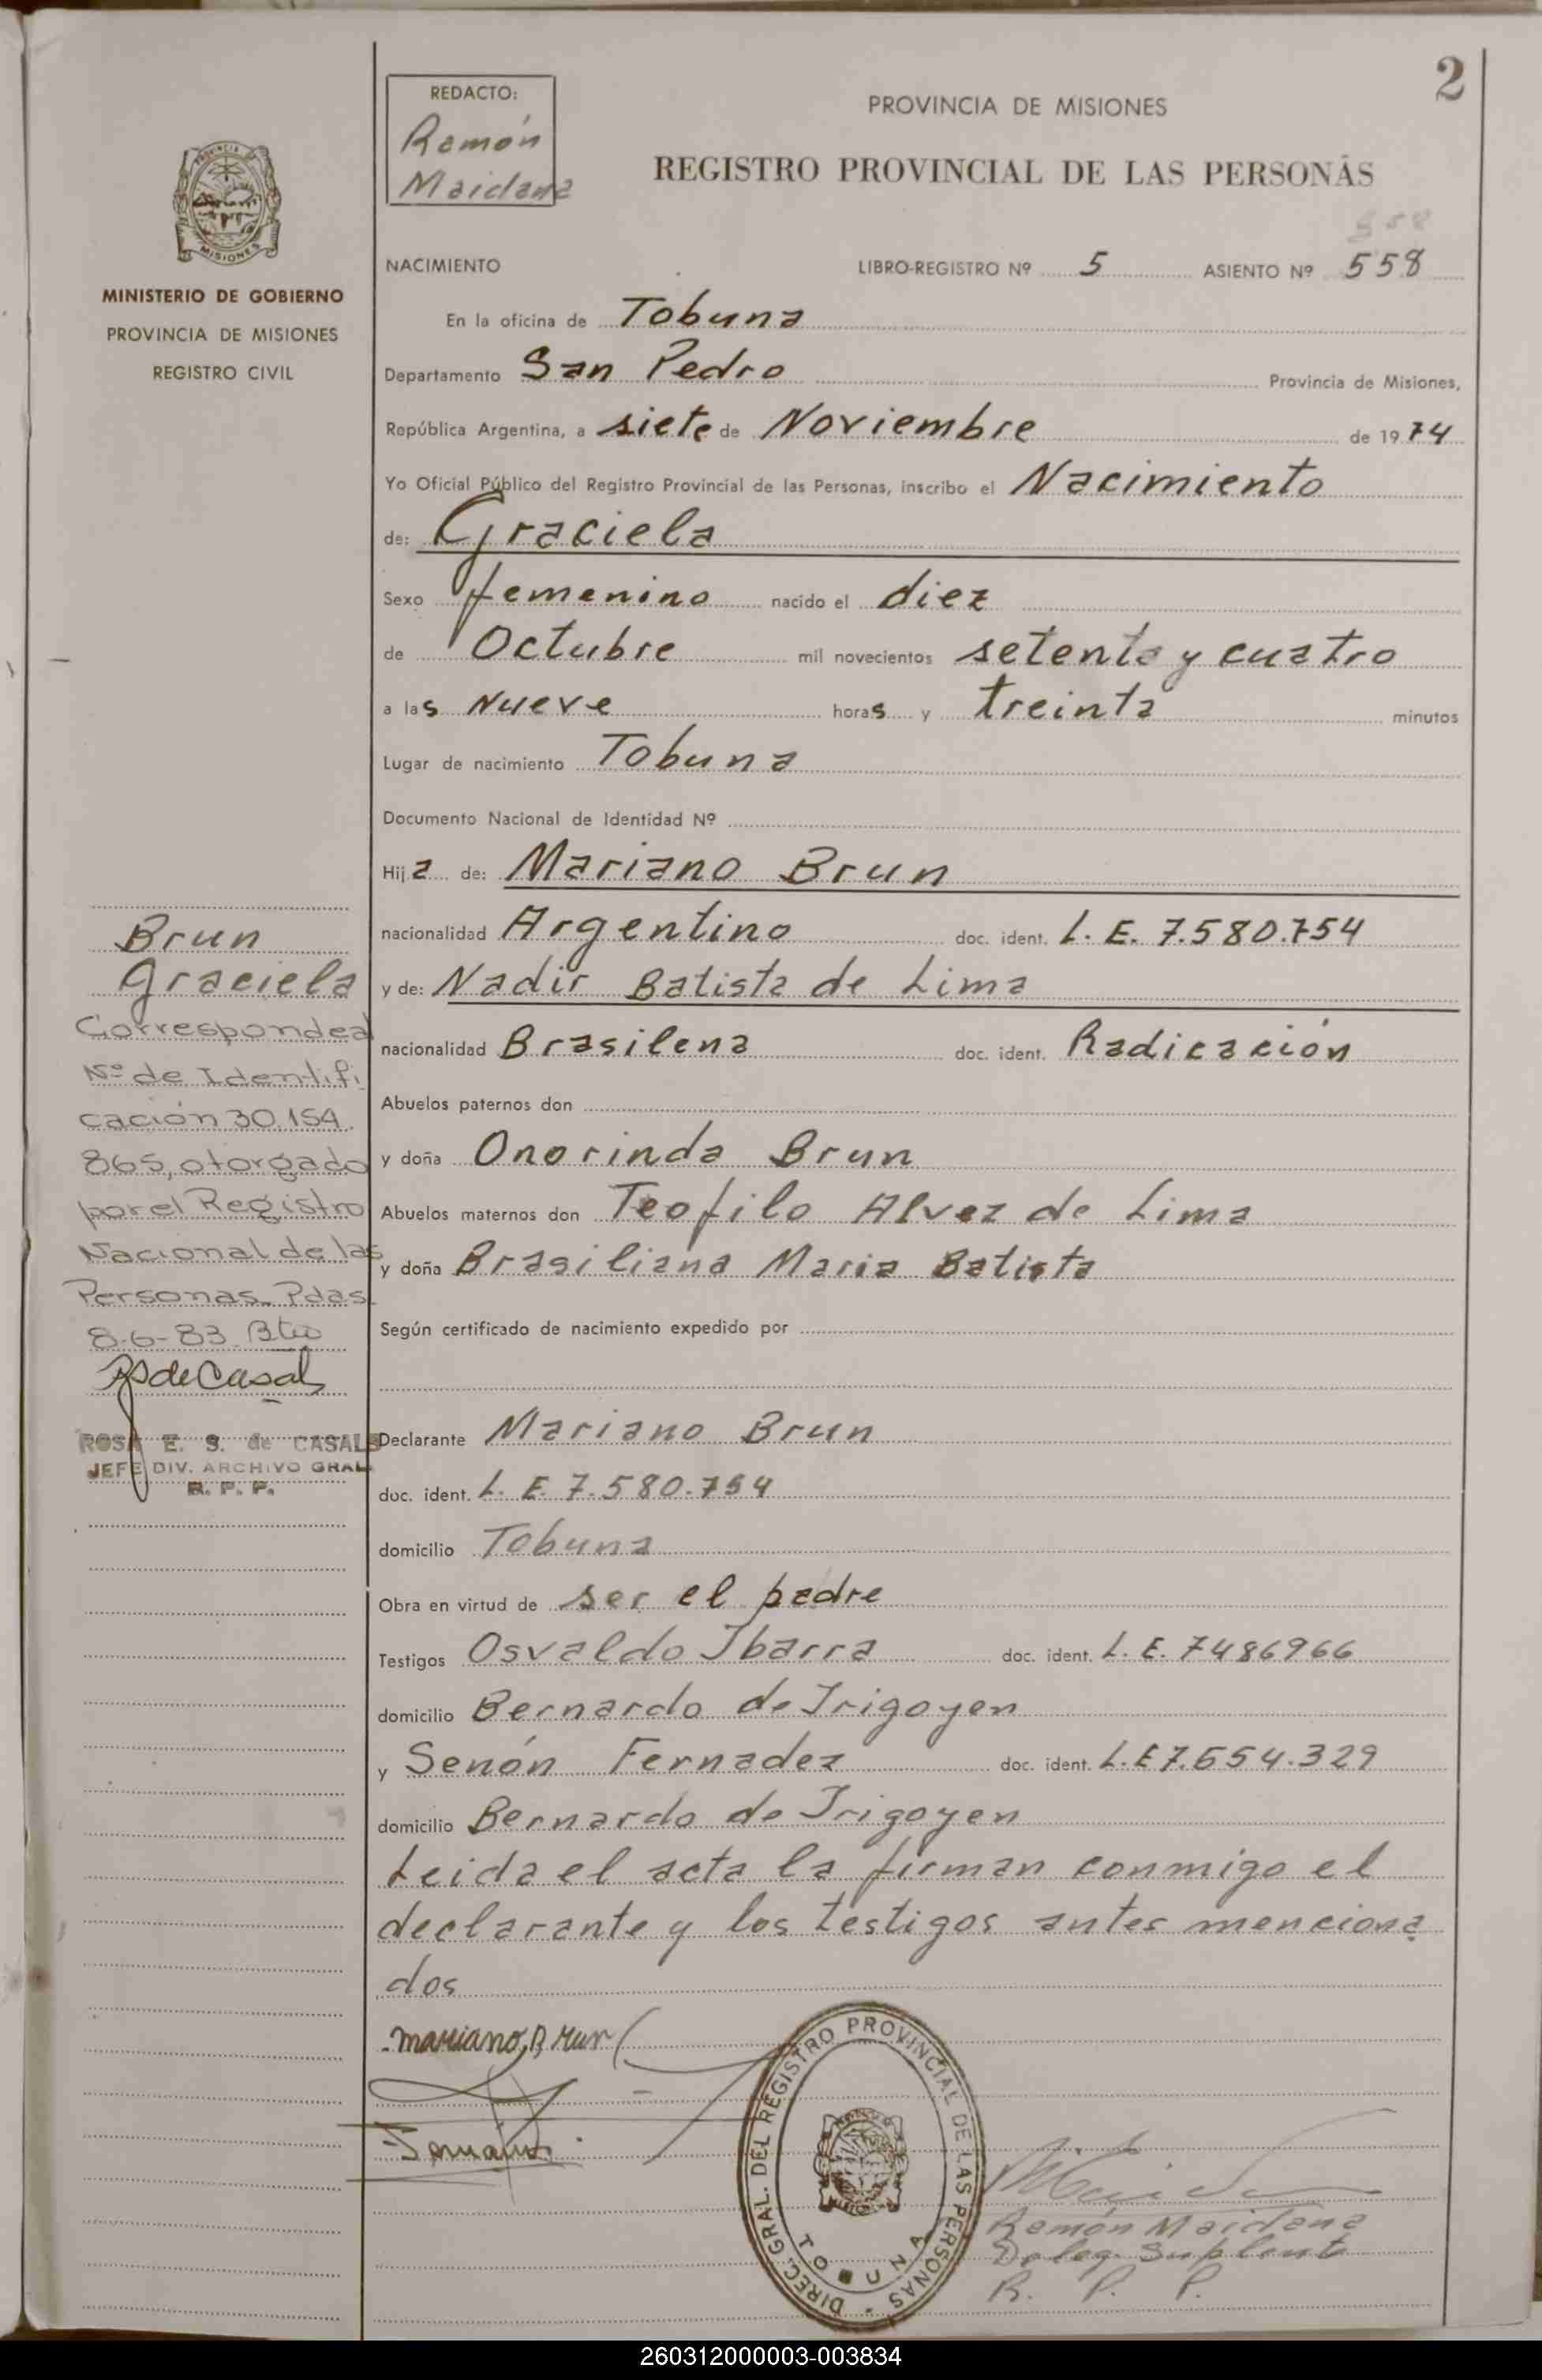 2
REDACTO:
Ramón
Maidana
PROVINCIA DE MISIONES
REGISTRO PROVINCIAL DE LAS PERSONAS
MISIONES
MINISTERIO DE GOBIERNO
PROVINCIA DE MISIONES
REGISTRO CIVIL
558
NACIMIENTO LIBRO-REGISTRO Nº 5 ASIENTO Nº 558
En la oficina de Tobuna
Departamento San Pedro Provincia de Misiones,
República Argentina, a siete de Noviembre de 1974
Yo Oficial Público del Registro Provincial de las Personas, inscribo el Nacimiento
de: Graciela
Sexo femenino nacido el diez
de Octubre mil novecientos setenta y cuatro
a las Nueve horas y treinta minutos
Lugar de nacimiento Tobuna
Documento Nacional de Identidad Nº
Hija de: Mariano Brun
nacionalidad Argentino doc. ident. L. E. 7.580.754
y de: Nadir Batista de Lima
nacionalidad Brasilena doc. ident. Radicación
Abuelos paternos don
y doña Onorinda Brun
Abuelos maternos don Teofilo Alvez de Lima
y doña Brasiliana Maria Batista
Según certificado de nacimiento expedido por
Declarante Mariano Brun
doc. ident. L. E. 7.580.754
domicilio Tobuna
Obra en virtud de ser el padre
Testigos Osvaldo Ibarra doc. ident. L. E. 7486966
domicilio Bernardo de Irigoyen
y Senón Fernadez doc. ident. L.E 7.654.329
domicilio Bernardo de Irigoyen
Leida el acta la firman conmigo el
declarante y los testigos antes menciona
dos
Brun
Graciela
Corresponde al
Nº de Identifi
cación 30.154.
865, otorgado
por el Registro
Nacional de las
Personas. Pdas.
8-6-83
de Casals
ROSA E. S. de CASALS
JEFE DIV. ARCHIVO GRAL
R. P. P.
Mariano Brun
DIREC. GRAL. DEL REGISTRO PROVINCIAL DE LAS PERSONAS
TOBUNA
Ramón Maidana
Deleg. Suplente
R. P. P.
260312000003-003834